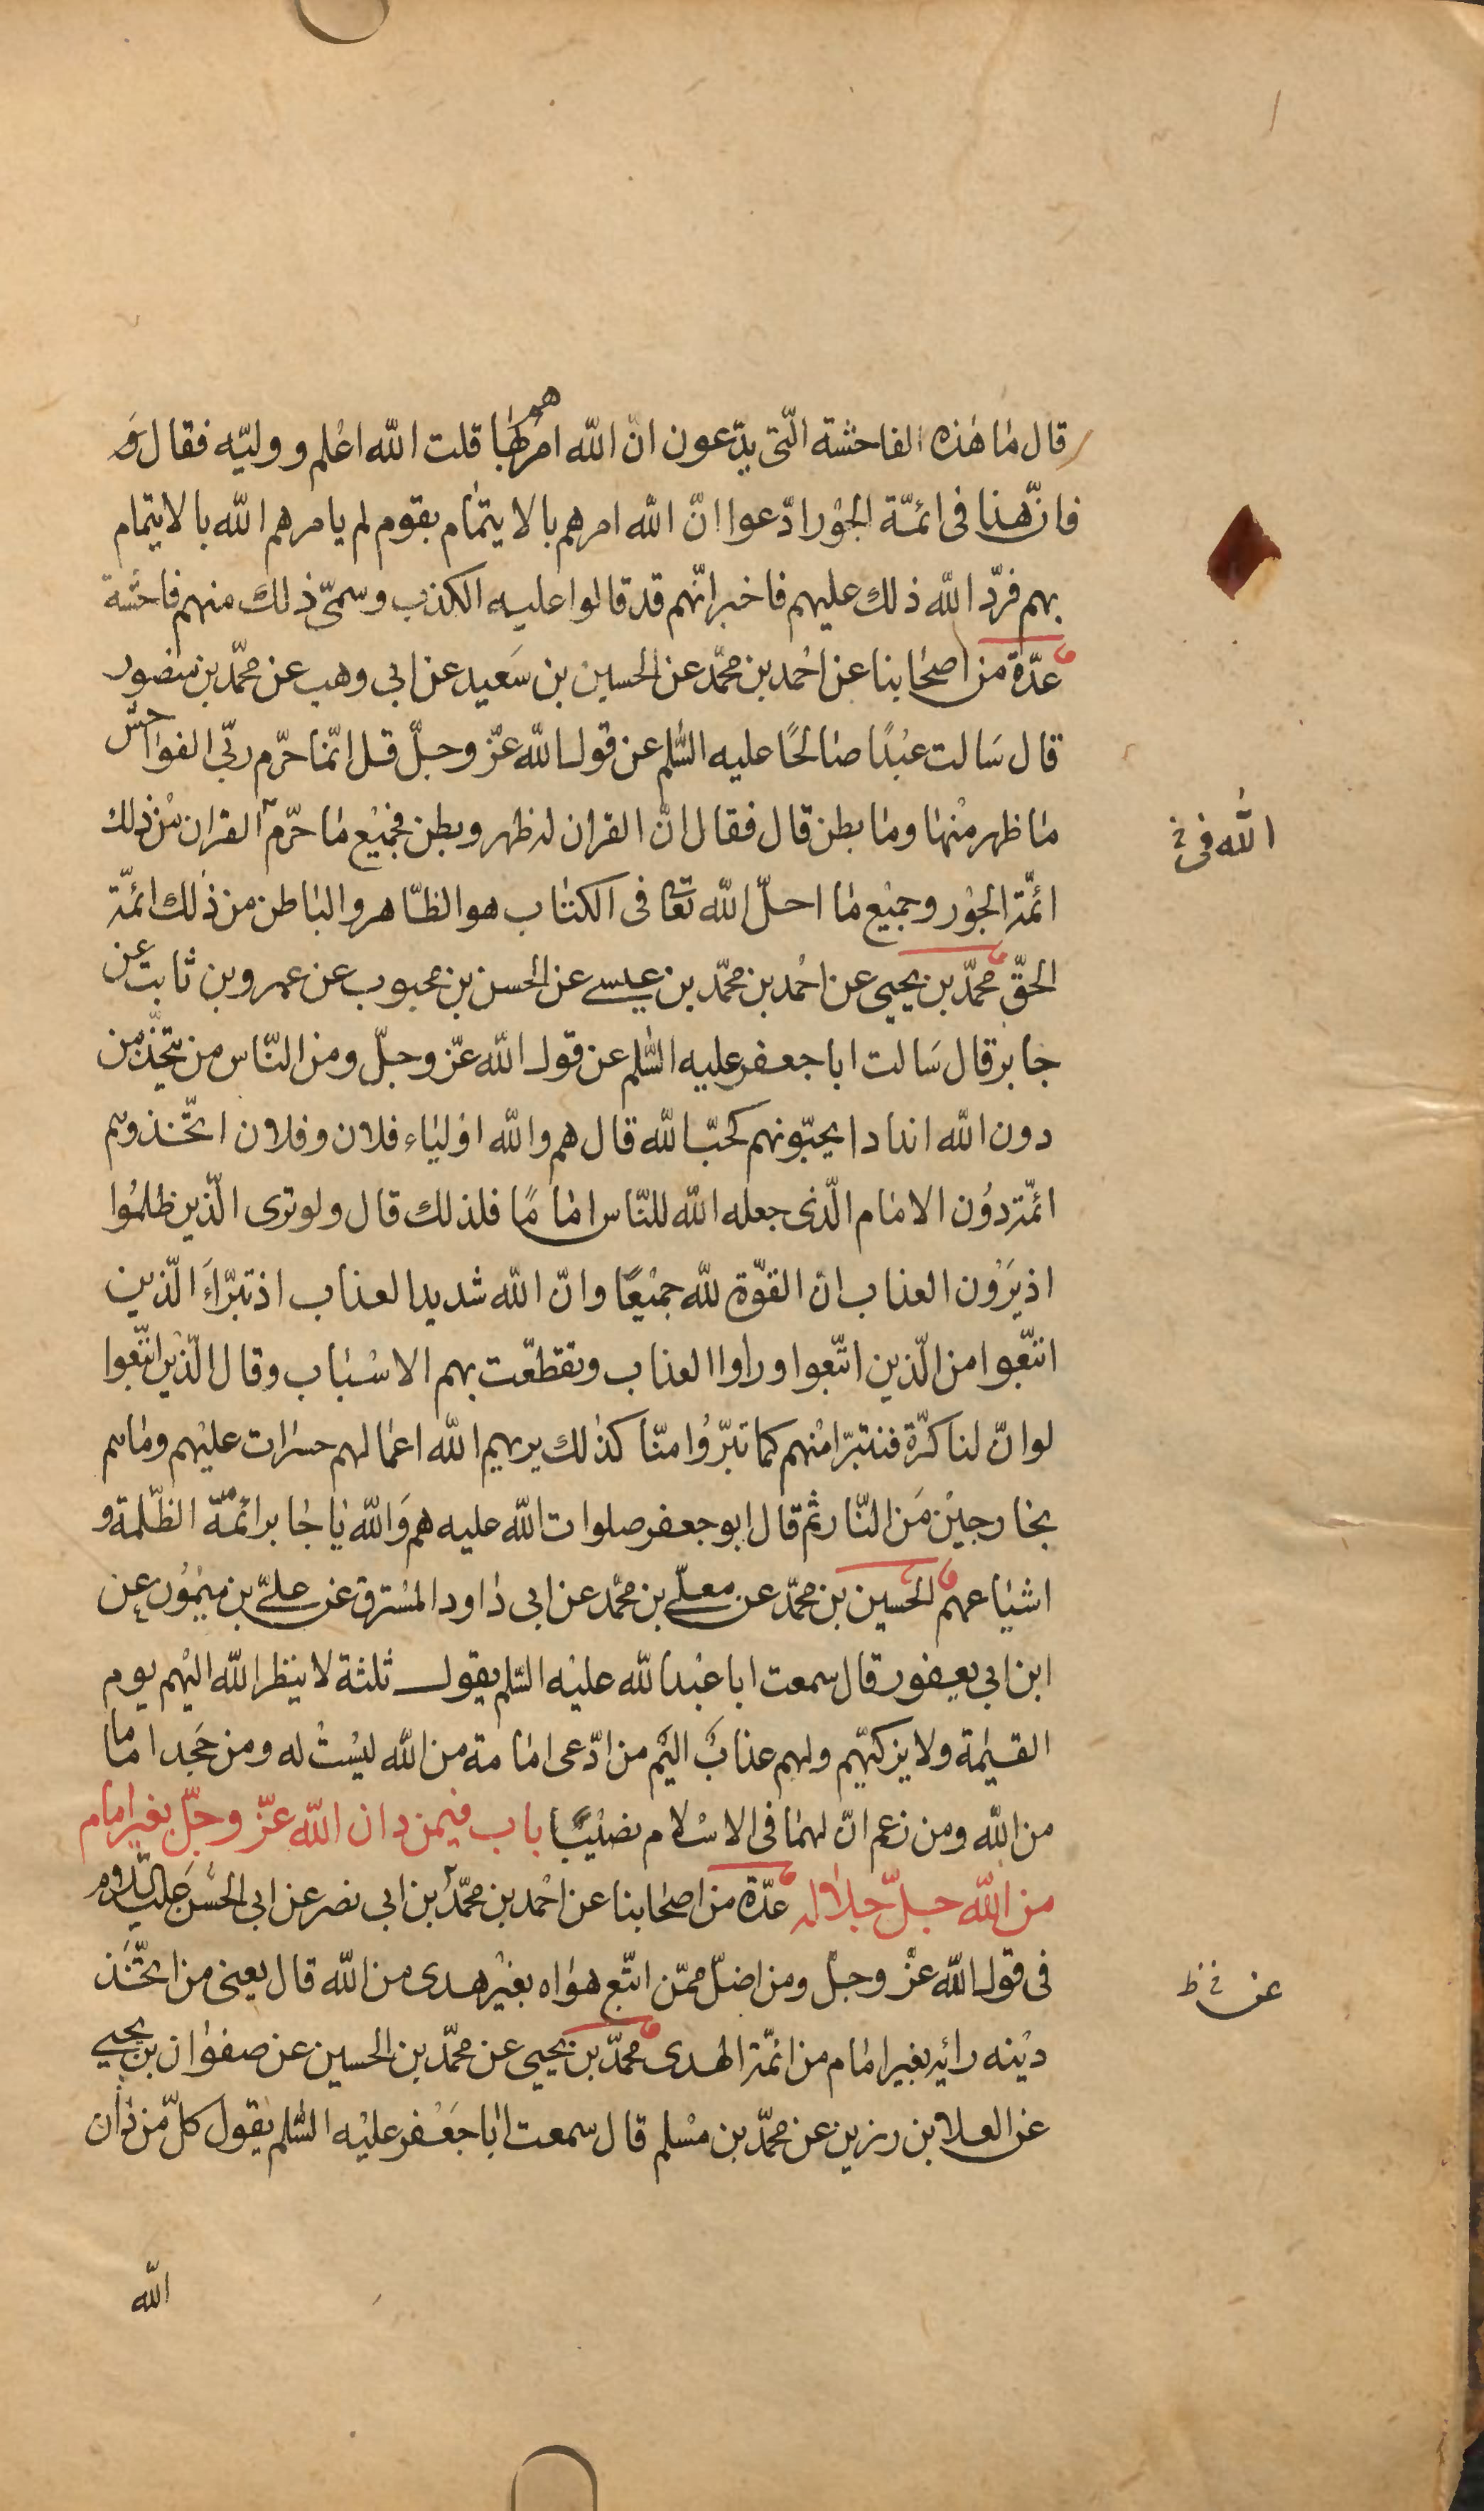 قال ما هذه الفاحشة الّتى يدّعون انّ الله امرهم بها قلت الله اعلم ووليّه فقال وَ
فانّ هذا فى ائمّة الجوْر ادّعوا انّ الله امرهم بالايتمام بقوم لم يامرهم الله بالايتمام
بهم فردّ الله ذلك عليهم فاخبر انّهم قد قالوا عليه الكذب وسمّى ذلك منهم فاحشة
عدّة من اصحابنا عن احمد بن محمّد عن الحسين بن سَعيد عن ابى وهب عن محمّد بن منصور
قال سَالت عبْدًا صَالحًا عليه السّلم عن قول الله عزّ وجلّ قل انّما حرّم ربّى الفواحش
ما ظهر منْها وما بطن قال فقال انّ القران له ظهر وبطن فجميْع ما حرّم القران منْ ذلك
الله فى خ
ائمّة الجوْر وجميْع ما احلّ الله تعا فى الكتاب هو الظّاهر والباطن من ذلك ائمّة
الحقّ محمّد بن يحيى عن احْمد بن محمّد بن عيسى عن الحسن بن محبوب عن عمرو بن ثابت عن
جابر قال سَالت ابا جعفر عليه السّلم عن قول الله عزّ وجلّ ومن النّاس من يتّخذ من
دون الله اندادا يحبّونهم كحبّ الله قال هم والله اوْلياء فلان وفلان اتّخذوهم
ائمّة دوُن الامام الّذى جعله الله للنّاس امامًا فلذلك قال ولو ترى الّذين ظلموُا
اذ يَرَوْن العذاب انّ القوّة لله جميْعًا وانّ الله شديد العذاب اذ تبرّاَ الّذين
اتّبعوا من الّذين اتّبعوا وراوا العذاب وتقطّعت بهم الاسْباب وقال الّذيْن اتّبعوا
لو انّ لنا كرّة فنتبرّا منْهم كما تبرّوُا منّا كذلك يريهم الله اعمالهم حسرات عليْهم وما هم
بخارجيْن مَن النّار ثم قال ابو جعفر صلوات الله عليه هم وَالله يا جابر ائمّة الظّلمة و
اشياعهم الحسين بن محمّد عن معلّى بن محمّد عن ابى داود المسْترق عن علىّ بن ميْموُن عن
ابن ابى يعفور قال سمعت ابا عبْد الله عليْه السّلم يقول ثلثة لا ينظر الله اليْهم يوم
القيٰمة ولا يزكيّهم ولهم عذابٌ اليْم من ادّعى امامة من الله ليْستْ له ومن جَحد اماما
من الله ومن زعم انّ لهما فى الاسْلام نصيْبًا باب فيمن دان الله عزّ وجلّ بغير امام
من الله جلّ جلاله عدّة من اصحابنا عن احْمد بن محمّد بن ابى نصر عن ابى الحسَن عليه السّلام
فى قول الله عزّ وجلّ ومن اضلّ ممّن اتّبع هواه بغيْر هدى من الله قال يعنى من اتّخَذ
عن خ ظ
ديْنه رائه بغير امام من ائمّة الهدى محمّد بن يحيى عن محمّد بن الحسين عن صفوان بن يحيى
عن العلا بن رزين عن محمّد بن مسْلم قال سمعت ابا جَعْفر عليْه السّلم يَقول كلّ من دان
الله